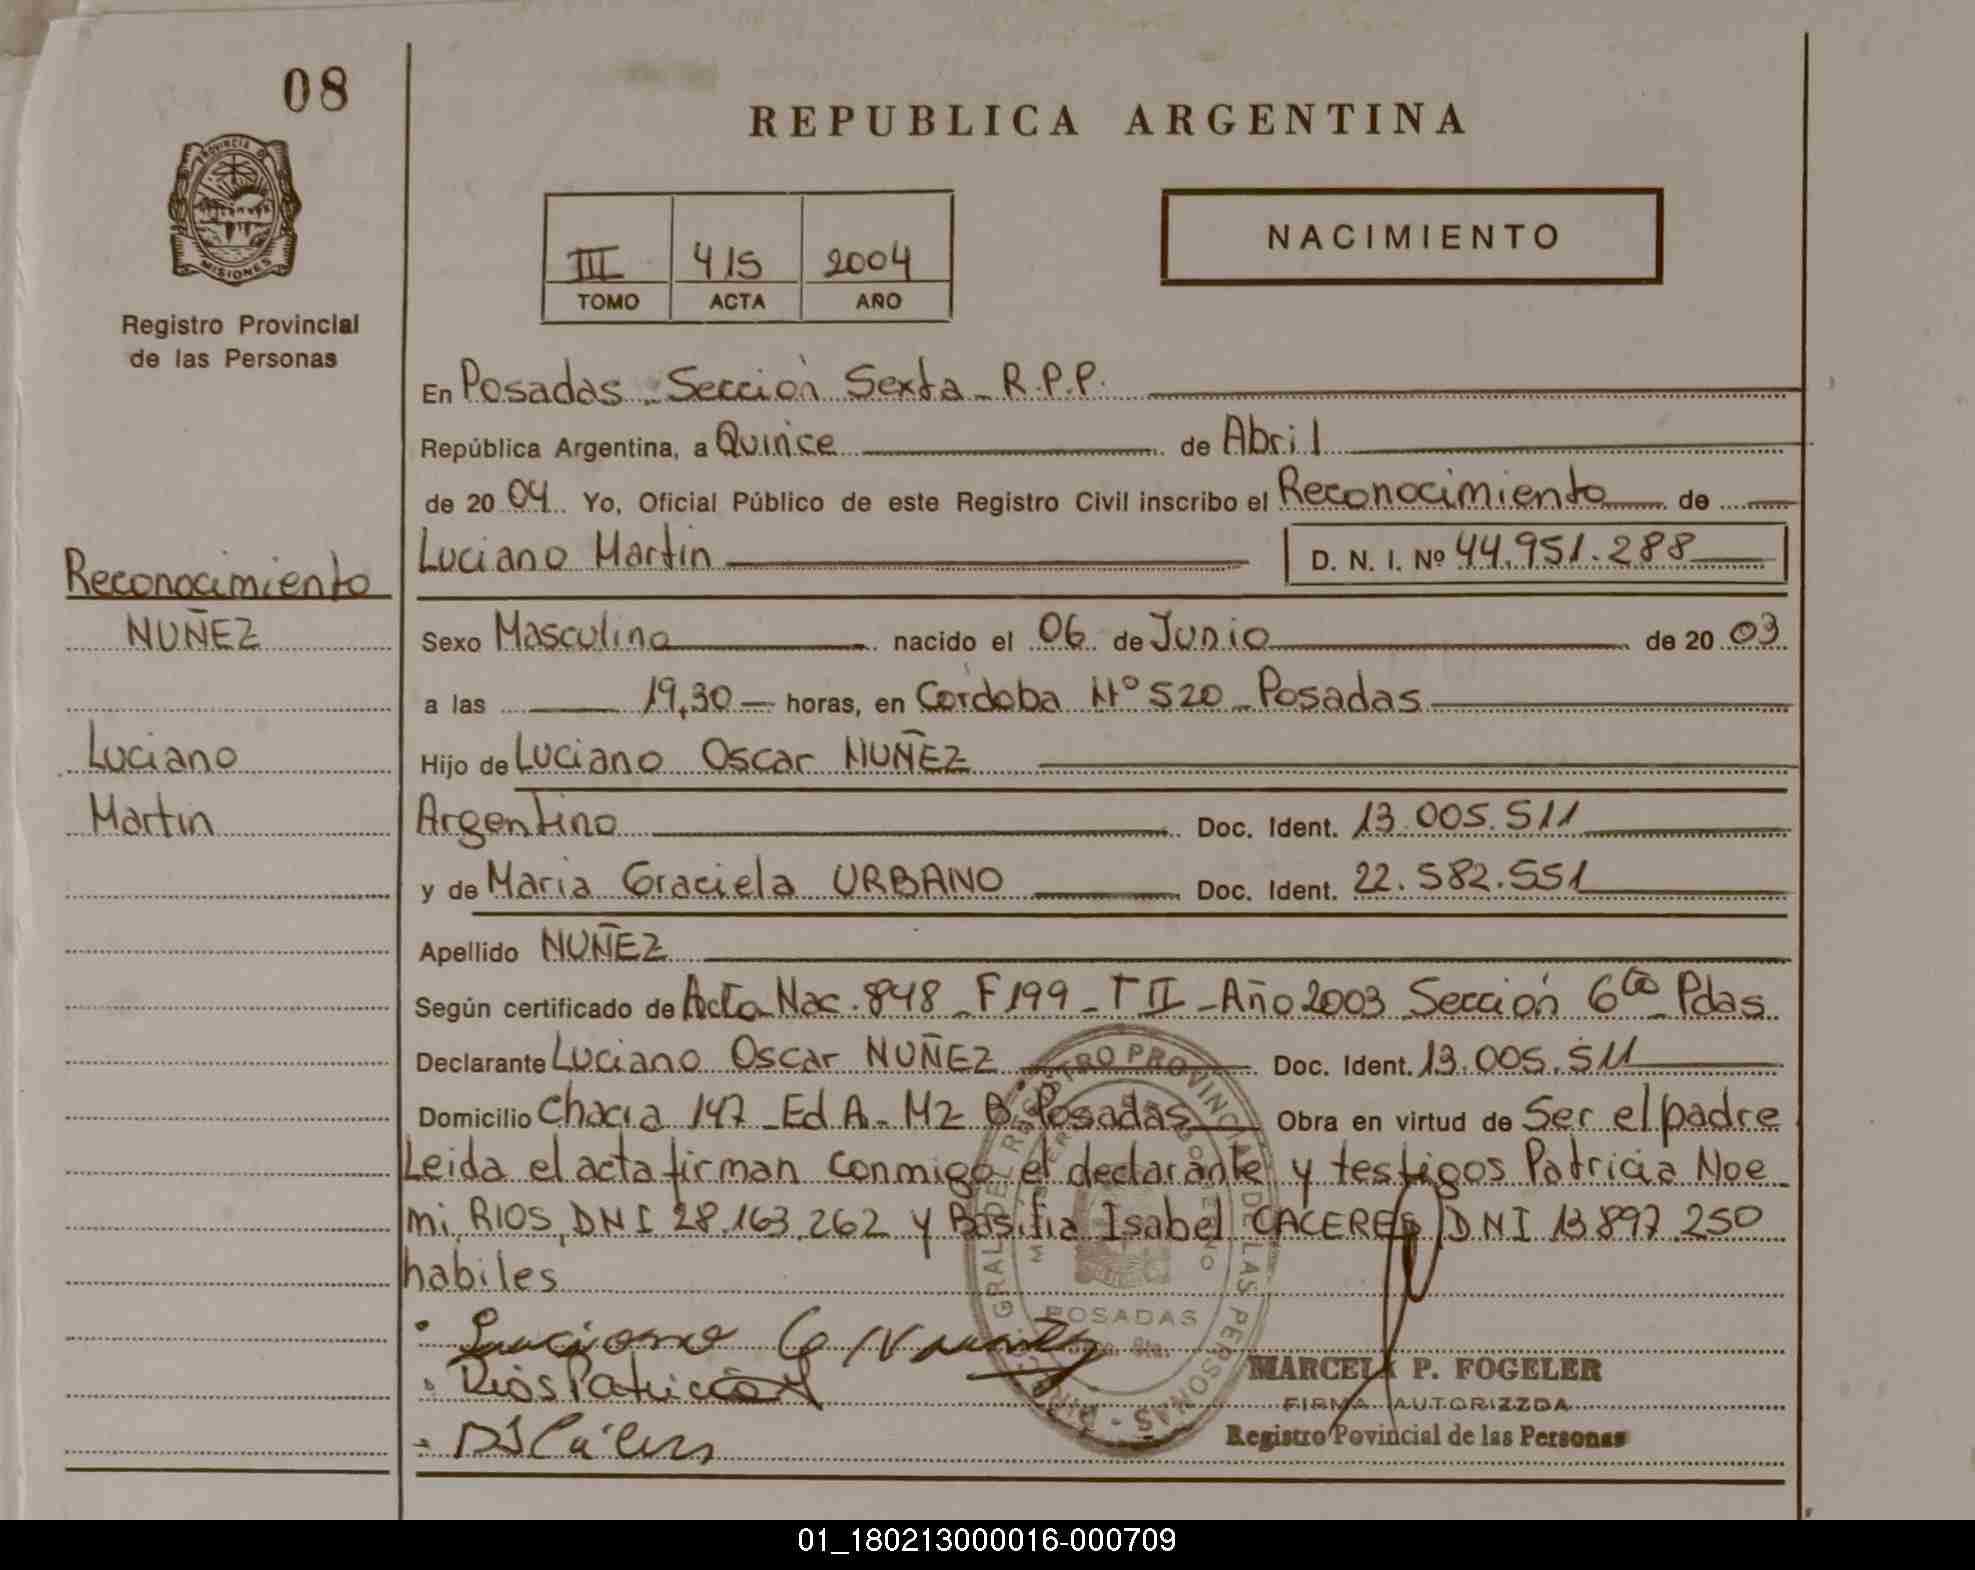 08
PROVINCIA D
MISIONES
Registro Provincial
de las Personas
REPUBLICA ARGENTINA
III 415 2004
TOMO ACTA AÑO
NACIMIENTO
En Posadas - Sección Sexta - R.P.P.
República Argentina, a Quince de Abril
de 2004 Yo, Oficial Público de este Registro Civil inscribo el Reconocimiento de
Luciano Martin D. N. I. Nº 44.951.288
Reconocimiento
NUÑEZ
Luciano
Martin
Sexo Masculino nacido el 06 de Junio de 2003
a las 19,30 horas, en Córdoba Nº 520 - Posadas
Hijo de Luciano Oscar NUÑEZ
Argentino Doc. Ident. 13.005.511
y de Maria Graciela URBANO Doc. Ident. 22.582.551
Apellido NUÑEZ
Según certificado de Acta Nac. 848 - F 199 - T II - Año 2003 Sección 6ta - Pdas
Declarante Luciano Oscar NUÑEZ Doc. Ident. 13.005.511
Domicilio Chacra 147 - Ed A - Mz B Posadas Obra en virtud de Ser el padre
Leida el acta firman conmigo el declarante y testigos Patricia Noe
mi RIOS, DNI 28.163.262 y Basilia Isabel CACERES DNI 13.897.250
habiles
Luciano O Nuñez
Rios Patricia
POSADAS
MARCELA P. FOGELER
FIRMA AUTORIZZDA
Registro Povincial de las Personas
01_180213000016-000709